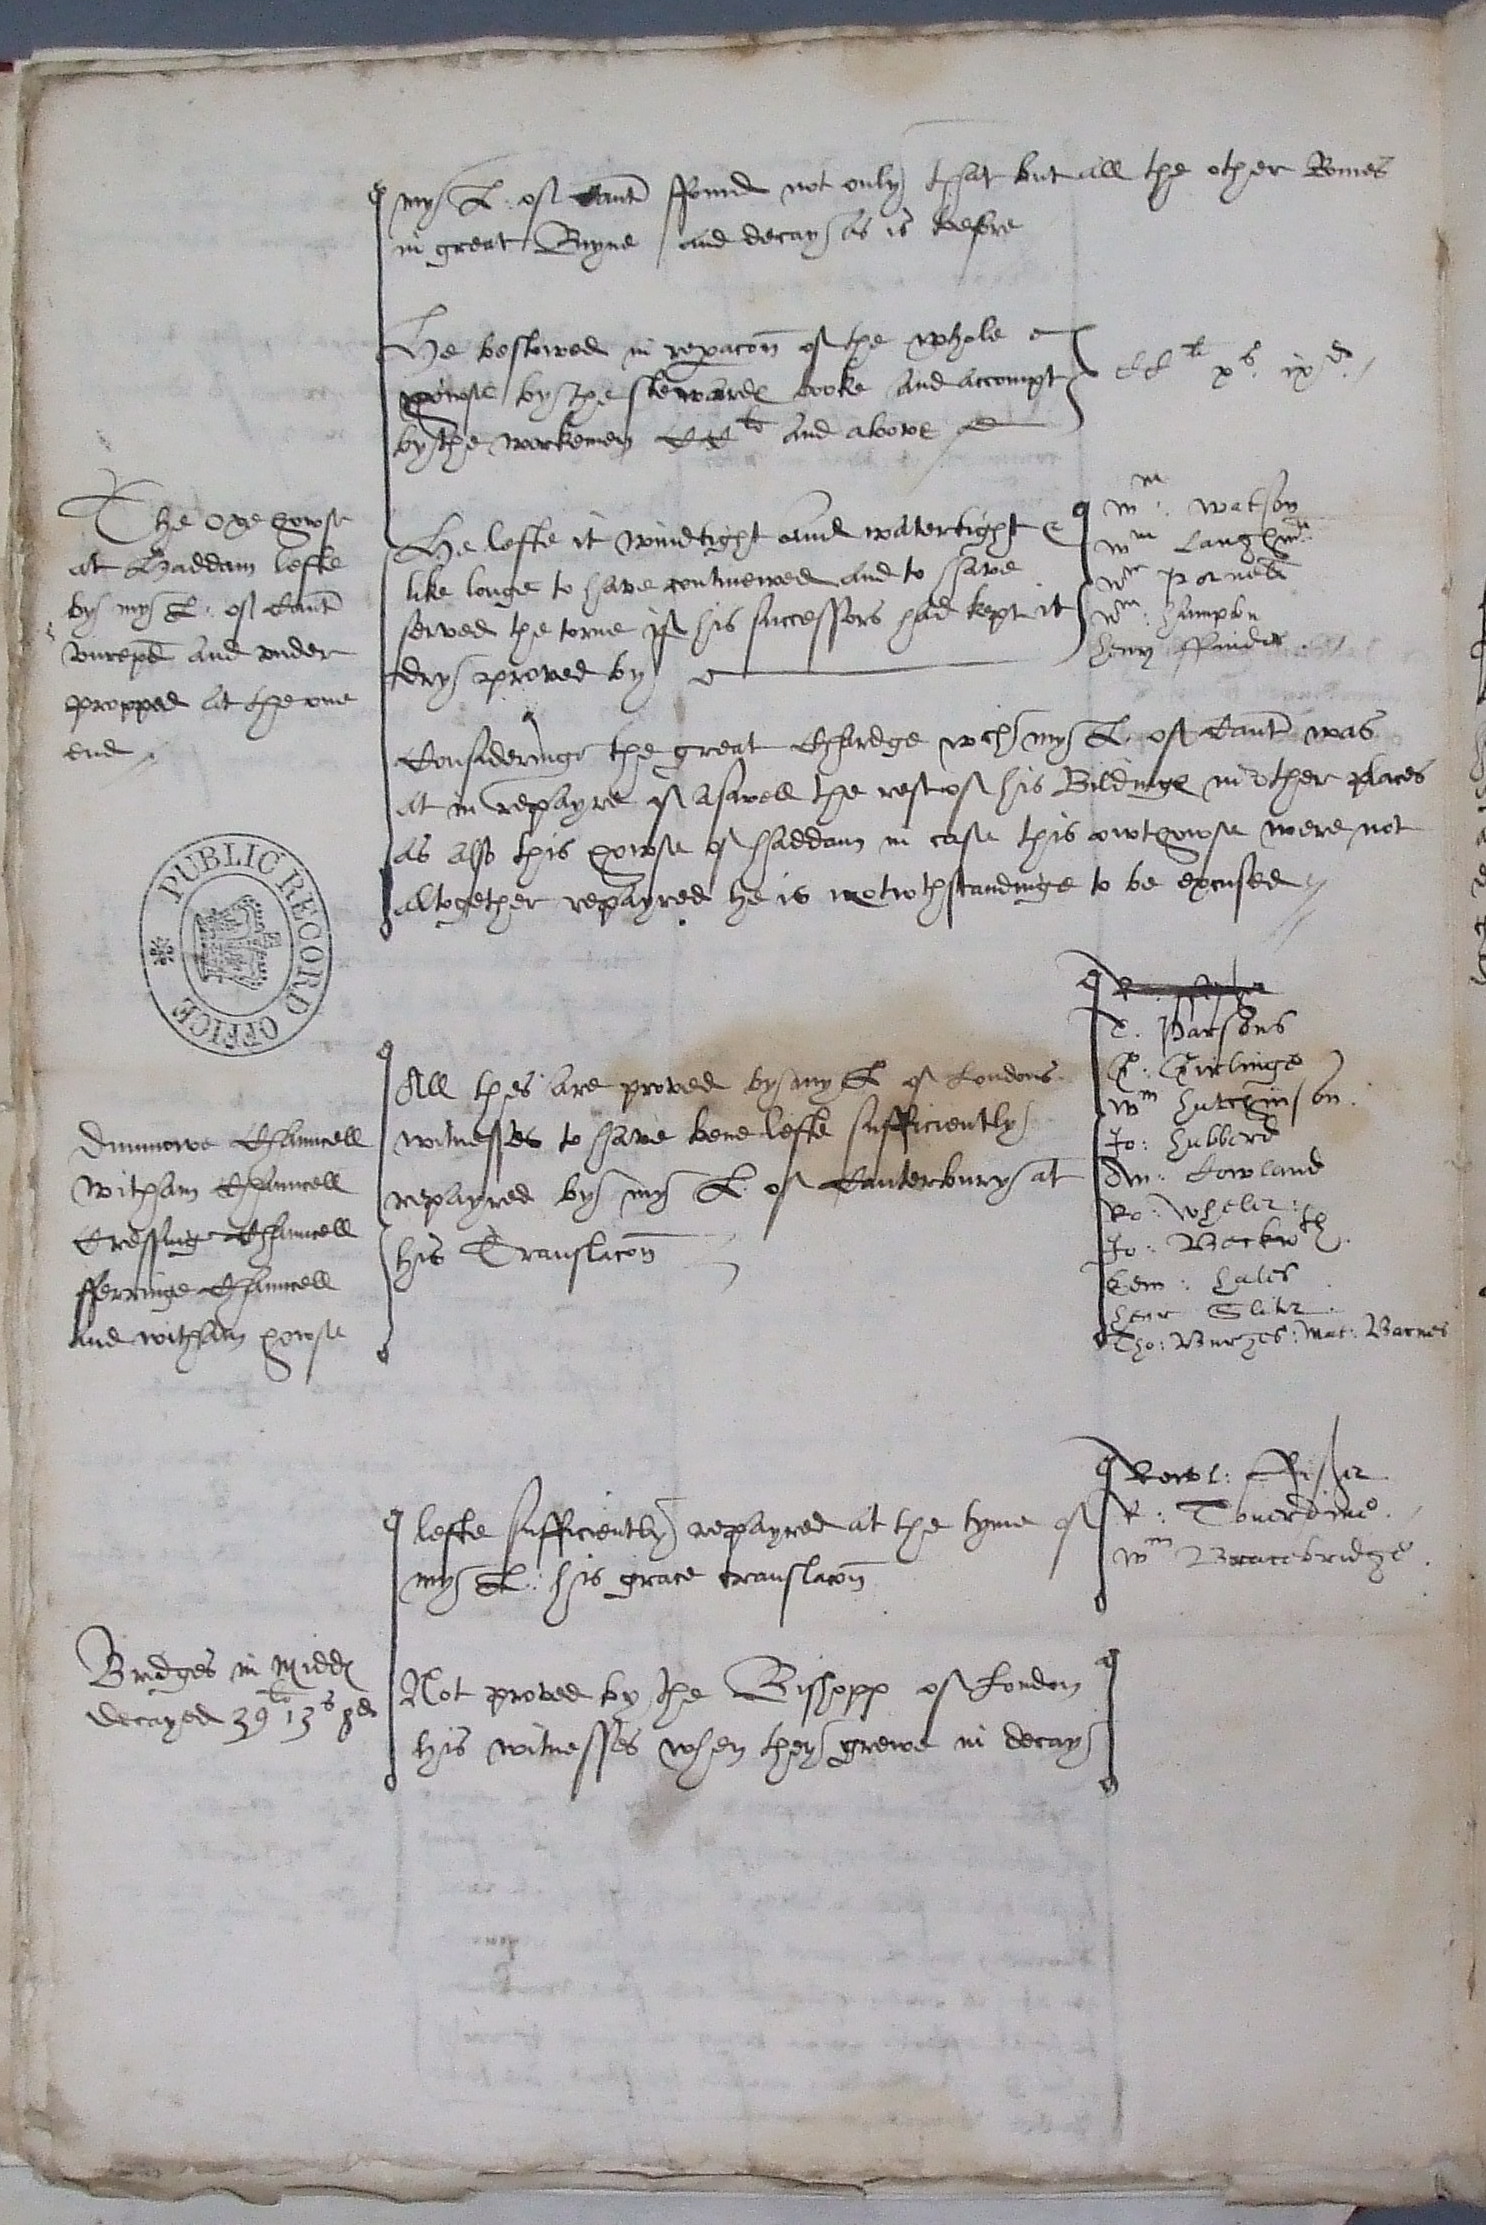 my L. of Cant ffound not only that but all the other Romes
in great Ruyne and decay as is before
He bestowed in repacon of the whole
howse by the stewardes booke and accompt
by the workemen CClb and above
CClb xs. ixd.
The Oxe howse
at Haddam lefte
by my L. of Cant
unrepd and under
propped at the one
end
He lefte it windtight and watertight
like longe to have contynewed and to have
served the torne if his successors had kept it
dry proved by
Wm. Watson
Wm Langhm
Wm Parnell
Wm. Hampton
Henry
Consideringe the great Chardge wch my L. of Cant was
at in repayre of aswell the rest of his Bildinges in other places
as also this howse of Haddam in case this owthowse were not
altogether repayred he is notwthstandinge to be excused
PUBLIC RECORD OFFICE
Dunmowe Chauncell
Witham Chauncell
Cressinge Chauncell
fferringe Chauncell
and Witham howse
All thes are proved by my L. of Londons
witnesses to have bene lefte sufficiently
repayred by my L. of Canterbury at
his Translacon
R. ffisher
T. Parsons
G. Girlinge
Wm Hutchinson.
Jo: Hubberd
An: Rowland
Ro: Wheler:
Jo: Backwth.
Rem: Hales
Henr Sliter.
Tho: Burges: Mat: Barnes
lefte sufficiently repayred at the tyme of
my L: his grace translacon
Rowl: ffisher
R: Toverdine.
Wm Bracebridge.
Bridges in Midd
decayed 39lb 13s 8d
Not proved by the Bishopp of London
his witnesses when they grewe in decay